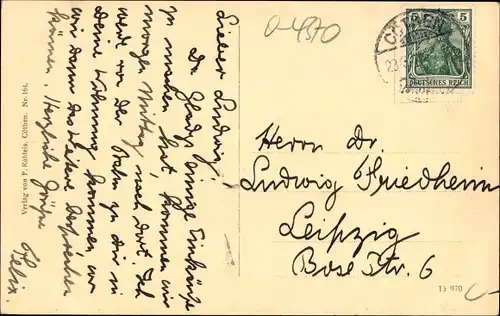 Lieber Ludwig,
Da Gladys einige Einkäufe
zu machen hat, kommen wir
morgen Mittag nach dort. Ich
werde von der Bahn zu dir in
deine Wohnung kommen wo
wir dann das Weitere besprechen
können. Herzliche Grüße
Felix
Verlag von P. Cöthen. Nr. 164.
0-4370
CÖTHEN
23
5 5
DEUTSCHES REICH
Herrn Dr.
Ludwig Friedheim
Leipzig
Bose Str. 6
15 970